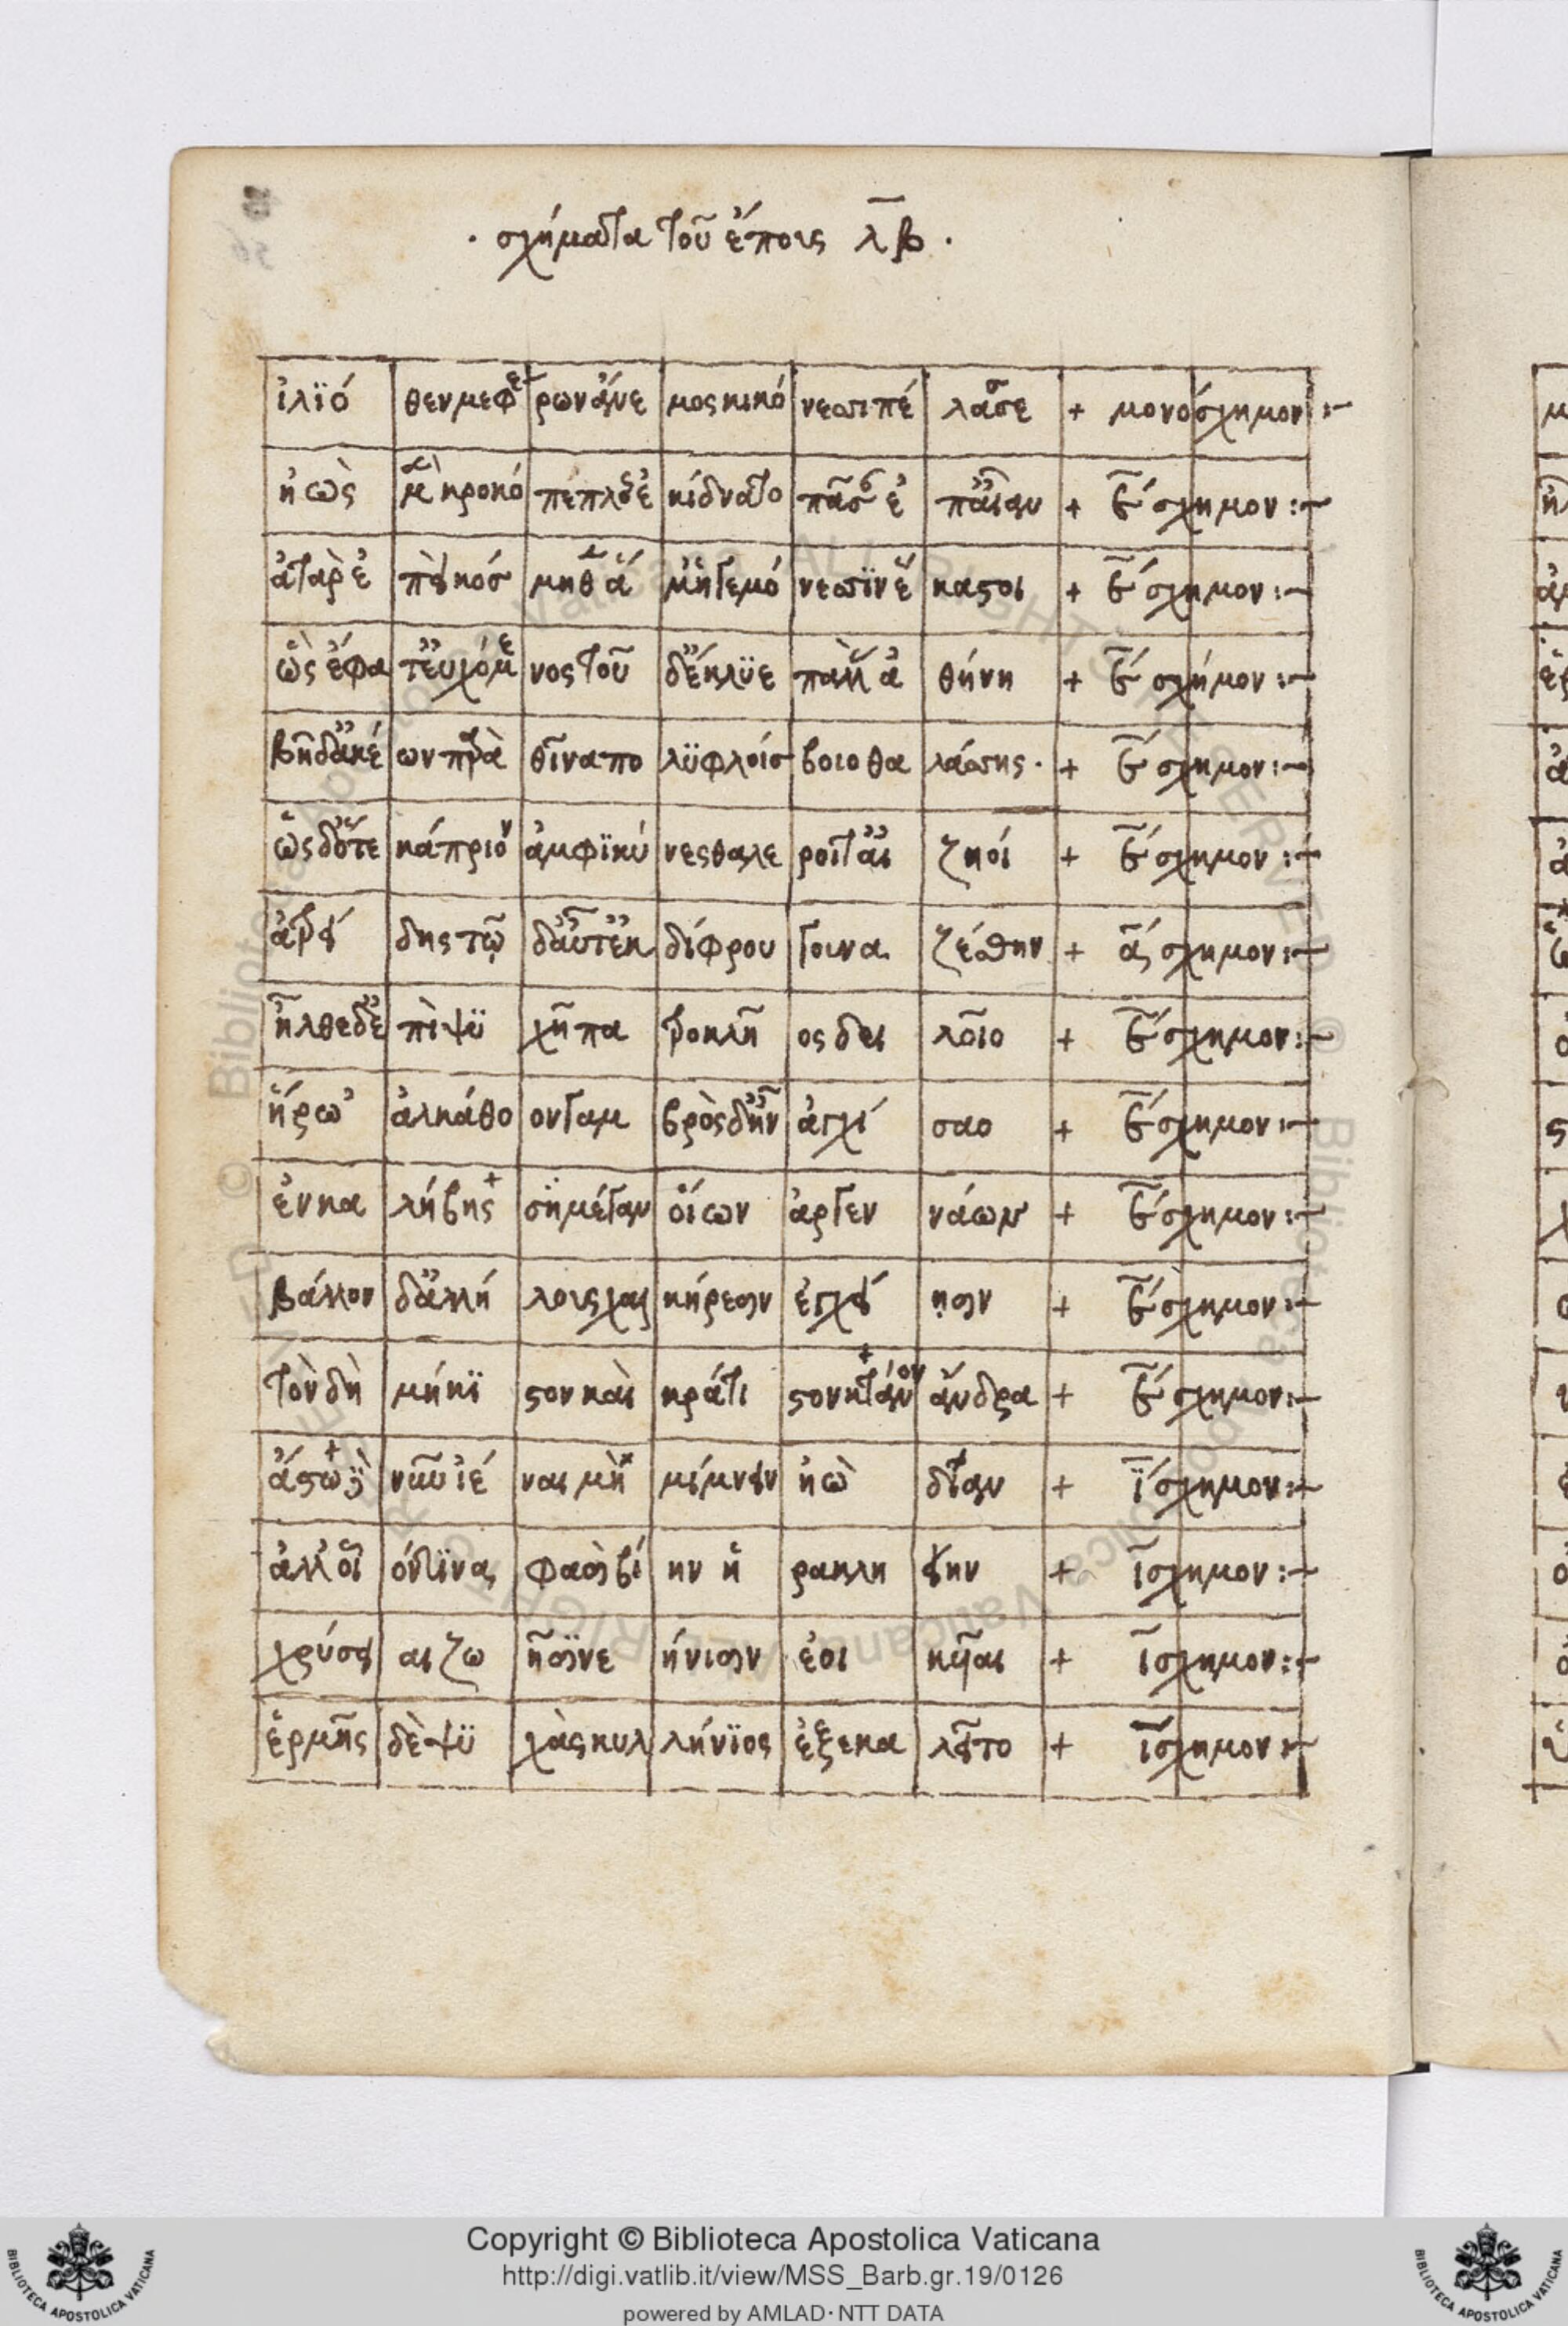 · σχήματα τοῦ ἔπους λβ ·
ἰλϊό θενμεφε ρωνάνε μοςκικό νεσσιπέ λασσε + μονόσχημον :~
ἠὼς μὲ κροκό πέπλοσἐ κίδνατο πᾶσ ἐ παῖαν + ε σχημον :~
ἀτὰρ ἐ πεικόσ μηθ ἅ μἡγεμό νεσσϊνἕ καστοι + ε σχημον :~
ὣς ἔφα τεὐχόμε νοςτοῦ δἔκλϋε παλλὰ ἀ θήνη + ε σχήμον :~
βῆδἀκέ ωνπαρὰ θῖναπο λϋφλοίσ βοιοθα λάσσης · + ε σχημον :~
ὡςδὅτε κάπριον ἀμφϊκύ νεςθαλε ροίταἰ ζηοί + ε σχημον :~
ἀτρεί δηςτῷ δαὖτἐκ δίφρου γουνα ζέσθην + α σχημον :~
ἦλθεδἐ πὶψϋ χὴπα τροκλῆ οςδει λοῖο + ε σχημον :~
ἥρω ἀλκάθο ονγαμ βρὸςδἦν ἀγχί σαο + ε σχημον :~
ἐνκα λήβης σϊμέγαν οἴκων ἀργεν νάων + ε σχημον :~
βάλλον δἀλλή λουςχαλ κήρεσιν ἐγχεί ησιν + ε σχημον :~
τὸνδὴ μήκι στονκαὶ κράτι στονκτάνον ἄνδρα + ε σχημον :~
ἄστω νῦν ἰέ ναιμὴ μίμνειν ἠῶ δῖαν + ϊ σχημον :~
ἀλλ οἵ όντινα φασὶβί ην ἡ ρακλη είην + ϊσχημον :~
χρύσει αιζω ῆσϊνε ήνισιν ἐοι κυῖαι + ϊσχημον :~
ἑρμῆς δὲψϋ χὰςκυλ λήνϊος ἐξεκα λεῖτο + ϊσχημον :~
Copyright © Biblioteca Apostolica Vaticana
http://digi.vatlib.it/view/MSS_Barb.gr.19/0126
powered by AMLAD · NTT DATA